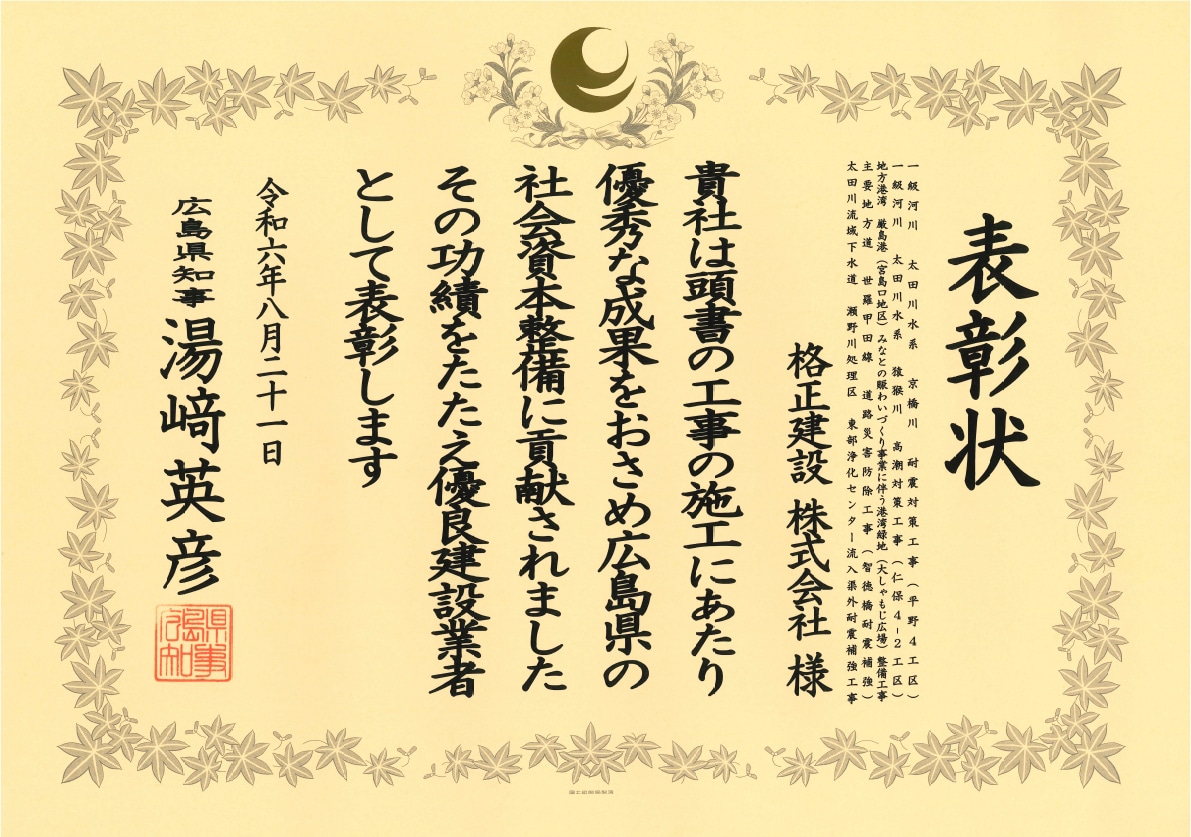 表彰状
一級河川 太田川水系 京橋川 耐震対策工事（平野4工区）
一級河川 太田川水系 猿猴川 高潮対策工事（仁保4-2工区）
地方港湾 厳島港（宮島口地区）みなとの賑わいづくり事業に伴う港湾緑地（大しゃもじ広場）整備工事
主要地方道 世羅甲田線 道路災害防除工事（智徳橋耐震補強）
太田川流域下水道 瀬野川処理区 東部浄化センター流入渠外耐震補強工事
格正建設 株式会社 様
貴社は頭書の工事の施工にあたり
優秀な成果をおさめ広島県の
社会資本整備に貢献されました
その功績をたたえ優良建設業者
として表彰します
令和六年八月二十一日
広島県知事 湯﨑英彦
広島県知事